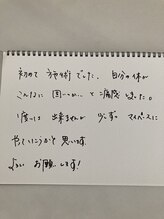 初めて 施術 でした。自分の体が
こんなに 固い… と痛感しました。
1度には 出来ませんが 少しずつ マイペースに
やっていこうかと 思います
よろしく お願いします!